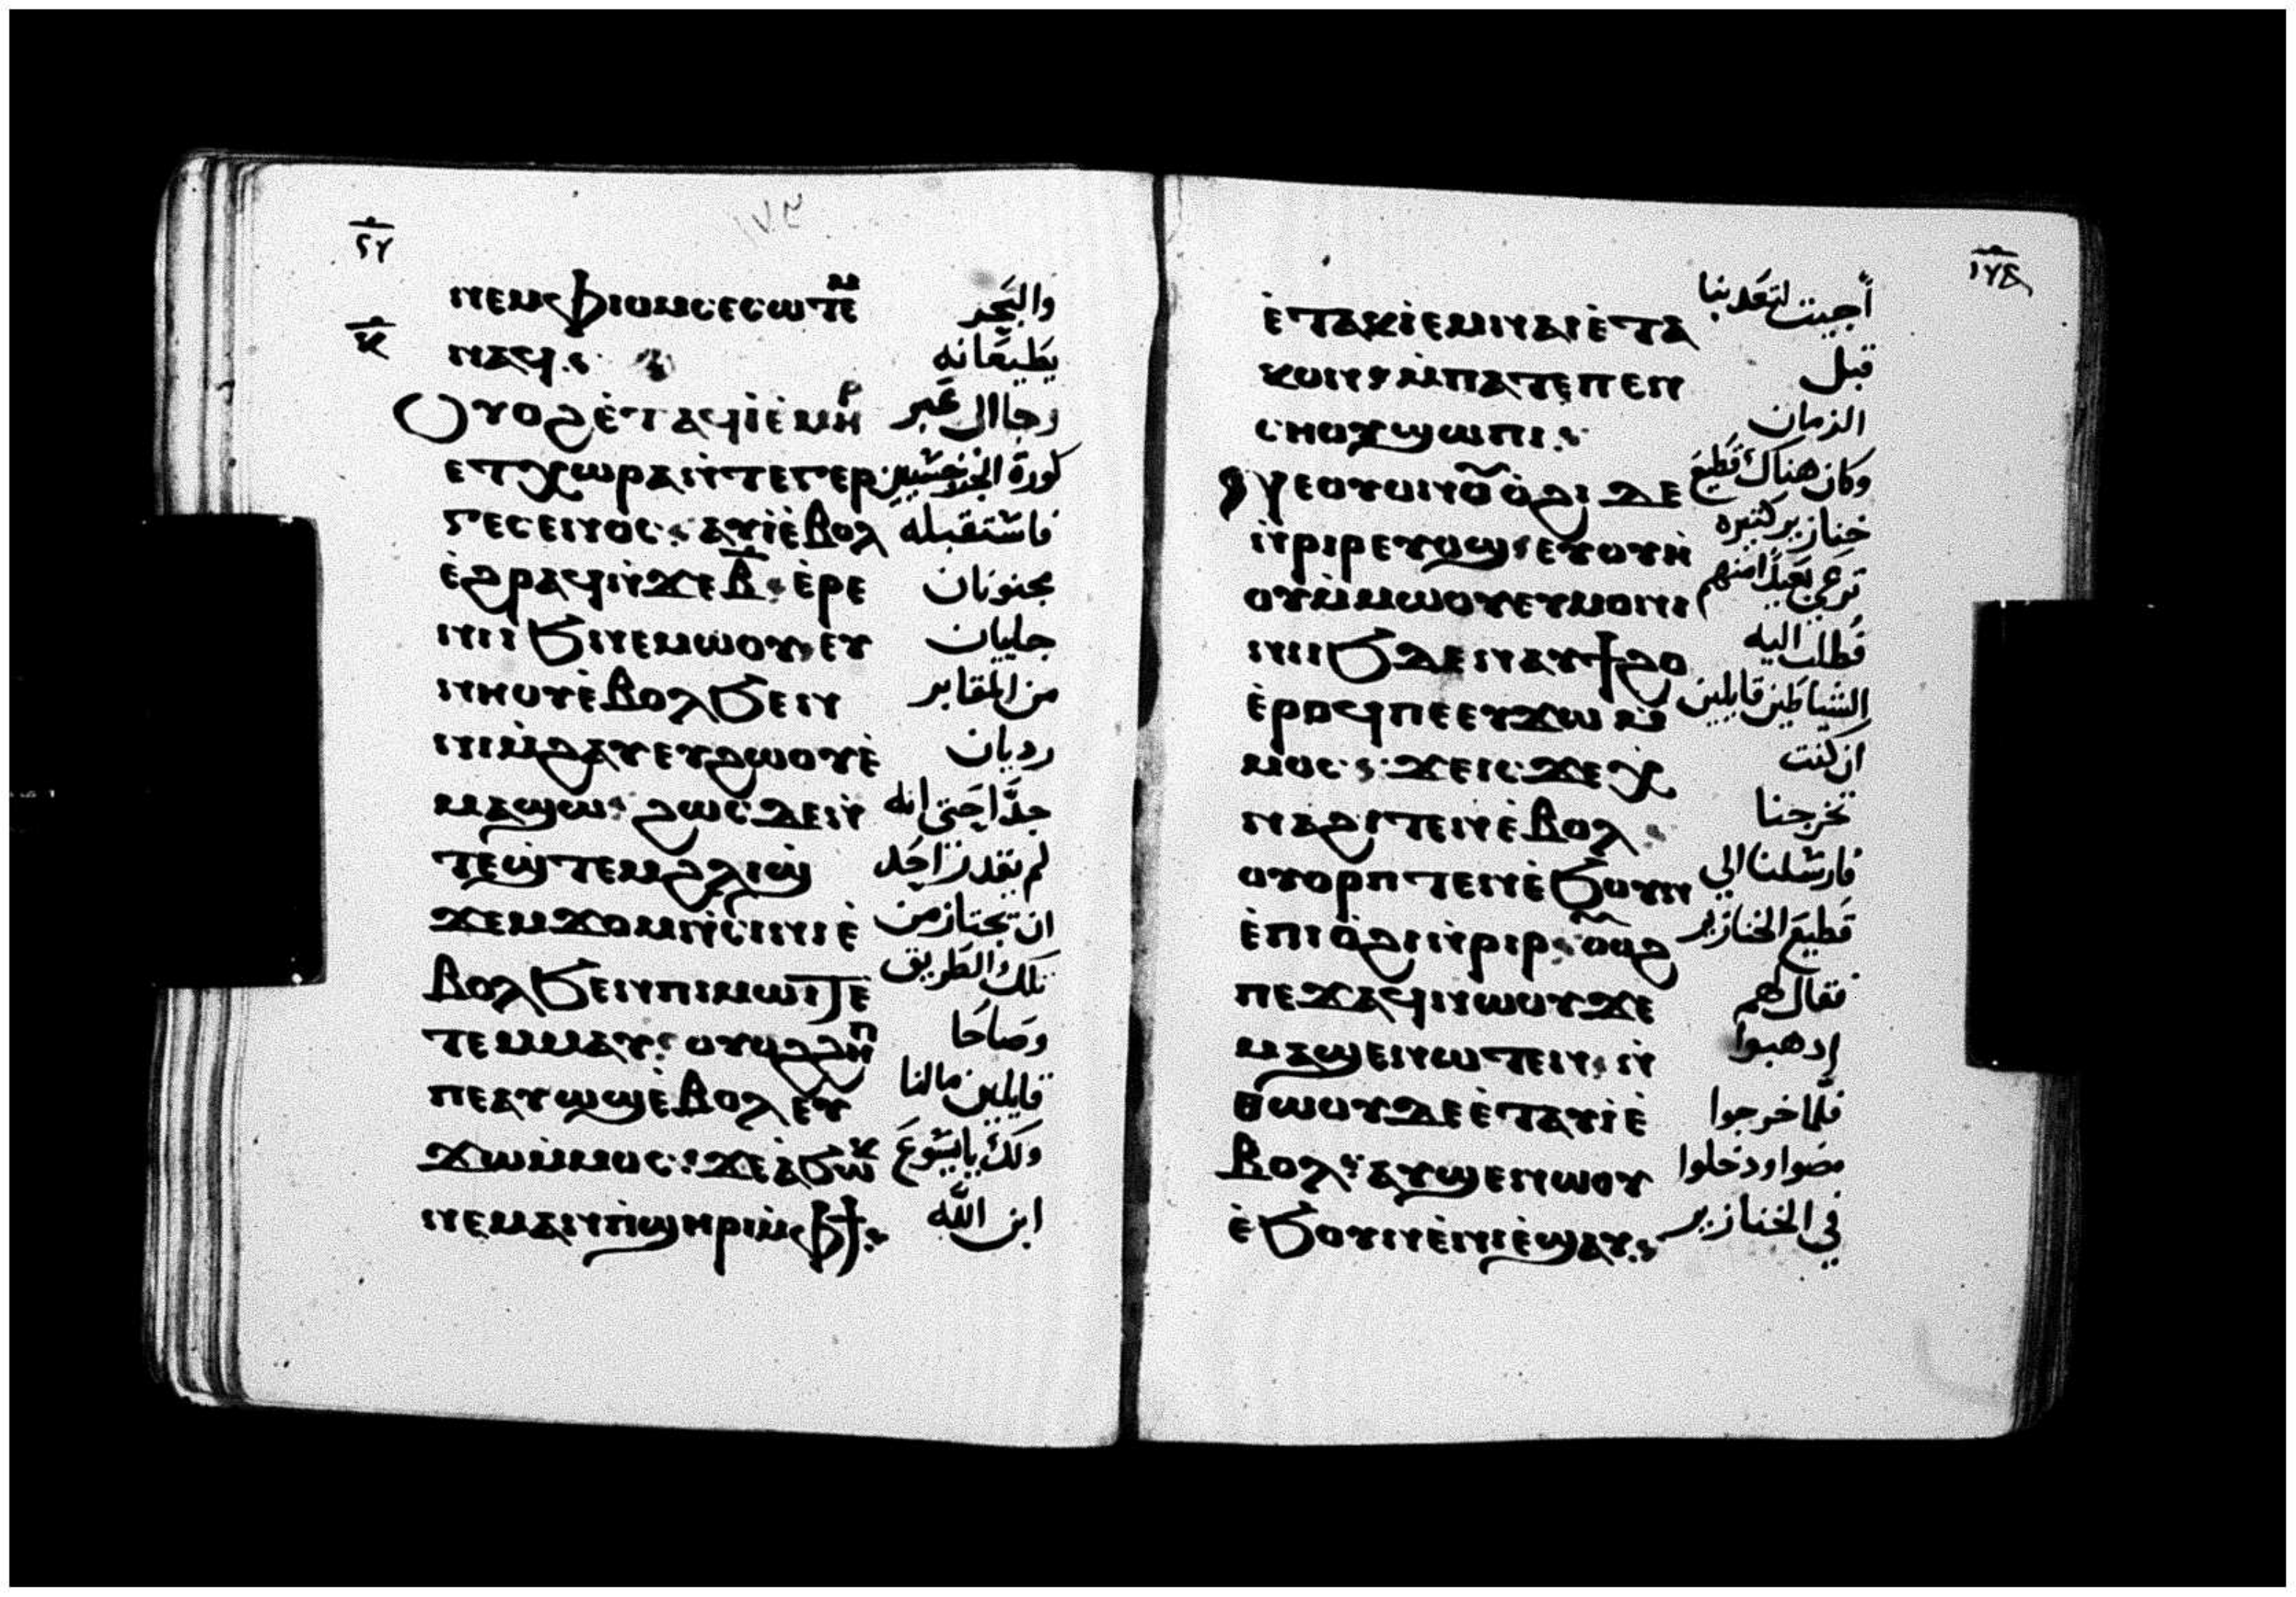 ⲛⲉⲙⲫⲓⲟⲙⲥⲉⲥⲱⲧⲉⲙ والبَحر
ⲛⲁϥ يَطيعَانه
ⲟⲩⲟϩⲉ̇ⲧⲁϥⲓ̇ⲉ̇ⲙⲏⲣ رجاال عَبر
ⲉⲧⲭⲱⲣⲁⲛ̇ⲧⲉⲅⲉⲣ كورة
ⲅⲉⲥⲉⲛⲟⲥ: ⲁⲩⲓ̇ⲉ̇ⲃⲟⲗ فاستقبله
ⲉ̇ϩⲣⲁϥⲛ̇ϫⲉⲃ̅: ⲉ̇ⲣⲉ مجنونان
ⲛⲓⲓϧⲛⲉⲙⲱⲟⲩ: ⲉⲩ جليان
ⲛⲏⲟⲩⲉ̇ⲃⲟⲗϧⲉⲛ من المقابر
ⲛⲓⲙ̇ϩⲁⲩⲉⲩϩⲱⲟⲩⲉ̇ رديان
ⲙⲁϣⲱ: ϩⲱⲥⲇⲉⲛ̇ جدًّا حَتى انه
ⲧⲉϣ̇ⲧⲉⲙϩⲗⲓϣ̇ لم يقدر احَد
ϫⲉⲙϫⲟⲙⲛ̇ⲥⲓⲛⲓⲉ̇ ان تجتاز من
ⲃⲟⲗϧⲉⲛⲡⲓⲙⲱⲓⲧⲉ̇ تلك الطَريق
ⲧⲉⲙⲙⲁⲩ: ⲟⲩⲟϩϩⲏⲡ وصَاحَا
ⲡⲉⲁⲩⲱϣⲉ̇ⲃⲟⲗⲉⲩ قايلين مالنا
ϫⲱⲙ̇ⲙⲟⲥ: ϫⲉⲁ̇ϧⲱⲕ ولَكَ يا يسُوعَ
ⲛⲉⲙⲁⲛⲡ̇ϣⲏⲣⲓⲙ̇ⲫϯ ابن الله
ⲉ̇ⲧⲁⲕⲓ̇ⲉⲙⲛⲁⲓⲉ̇ⲧⲁ أجيت لتعَذبنا
ⲕⲟⲛ: ⲙ̇ⲡⲁⲧⲉⲡⲉⲛ قبل
ⲥⲏⲟⲩϣⲱⲡⲓ الزمان
ⲛⲉⲟⲩⲟⲛⲟⲩⲟ̇ϩⲓ ⲇⲉ وكان هناك قَطيعَ
ⲛ̇ⲣⲓⲣⲉⲩⲟϣ: ⲉⲩⲟⲩⲏ خنازير كتيره
ⲟⲩⲙ̇ⲙⲱⲟⲩⲉⲩⲙⲟⲛⲓ ترعى بَعيدًا منهم
ⲛⲓⲓϧⲇⲉⲛⲁⲩϯϩⲟ فطلب اليه
ⲉ̇ⲣⲟϥⲡⲉⲉⲩϫⲱⲙ̇ الشياطين قايلين
ⲙⲟⲥ: ϫⲉⲓⲥϫⲉⲭ ان كنت
ⲛⲁϩⲓⲧⲉⲛⲉ̇ⲃⲟⲗ تخرجنا
ⲟⲩⲟⲣⲡⲧⲉⲛⲉ̇ϧⲟⲩⲛ فارسلنا الي
ⲉ̇ⲡⲓⲟ̇ϩⲓⲛ̇ⲣⲓⲣ: ⲟⲩⲟϩ قَطيعَ الخنازير
ⲡⲉϫⲁϥⲛⲱⲟⲩϫⲉ فقال لهم
ⲙⲁϣⲉⲛⲱⲧⲉⲛ: ⲛ̇ إدهبوا
ⲑⲱⲟⲩⲇⲉⲉ̇ⲧⲁⲩⲓ̇ⲉ̇ فلمّا خرجوا
ⲃⲟⲗ: ⲁⲩϣⲉⲛⲱⲟⲩ مضوا ودخلوا
ⲉ̇ϧⲟⲩⲛⲉ̇ⲛⲓⲉ̇ϣⲁⲩ في الخنازير